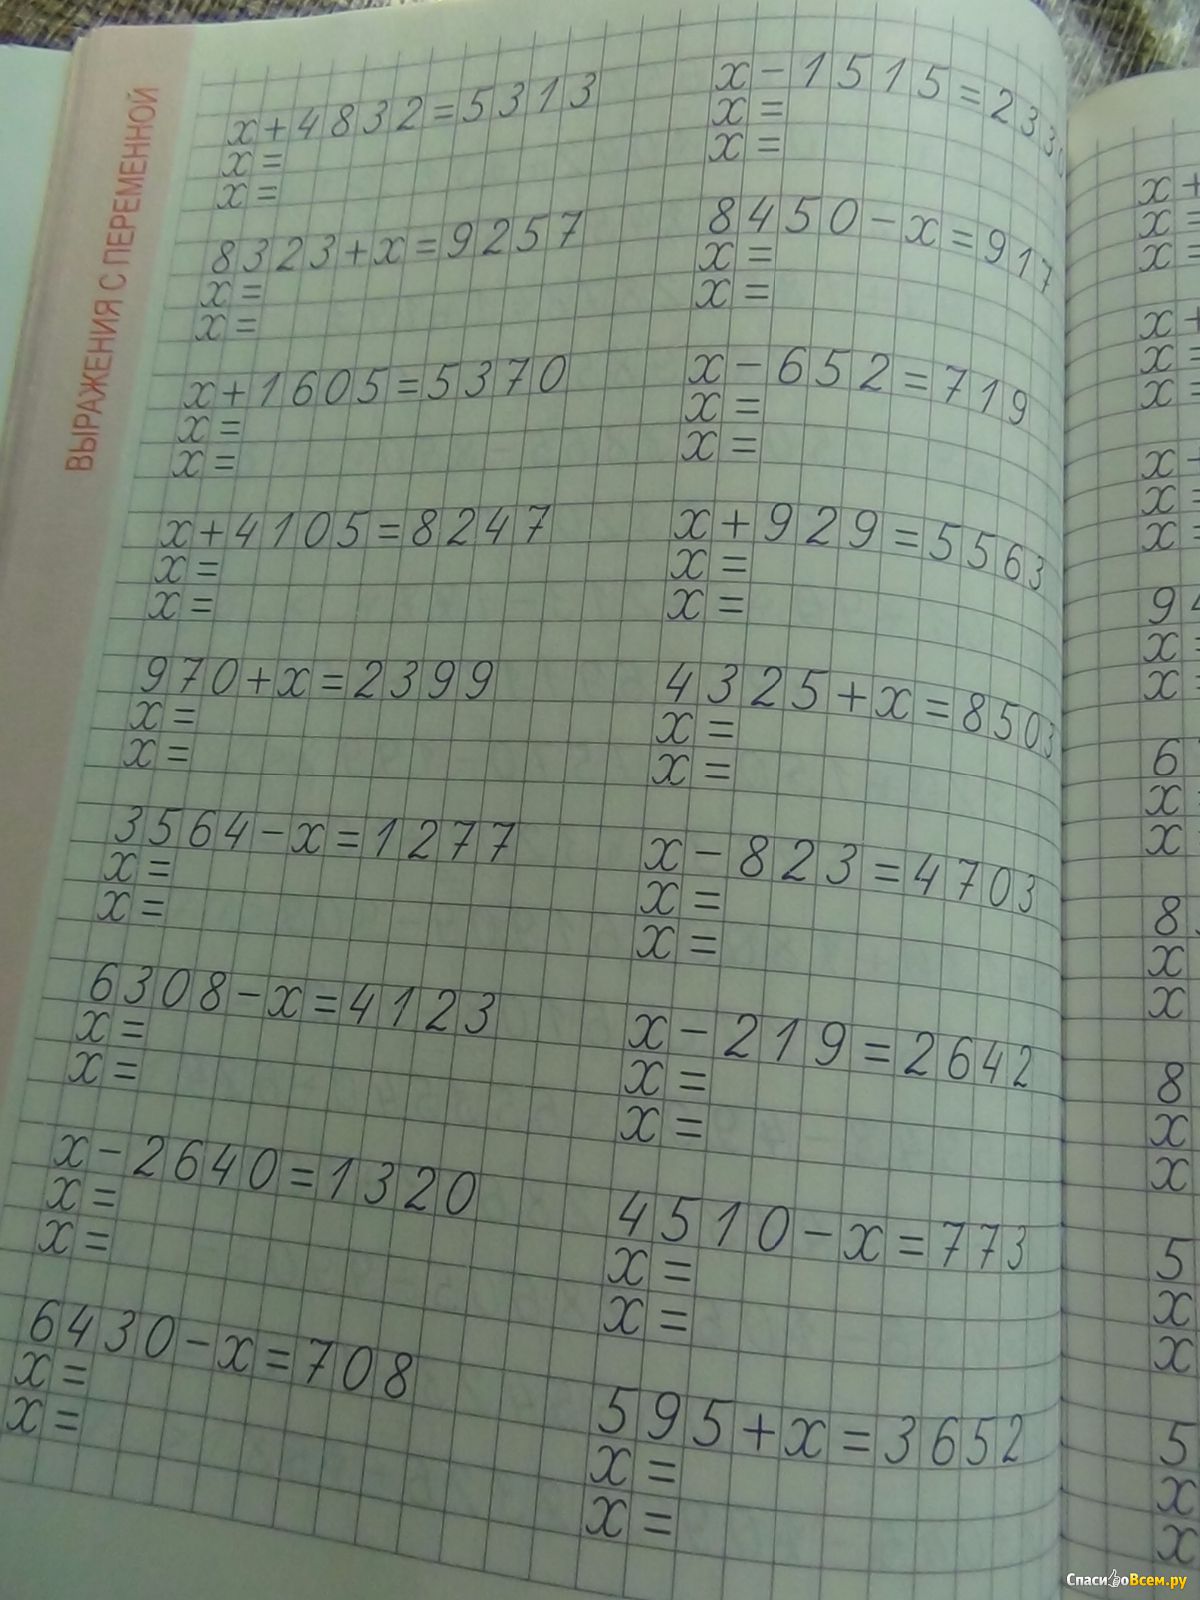 ВЫРАЖЕНИЯ С ПЕРЕМЕННОЙ
x+4832=5313
x=
x=
8323+x=9257
x=
x=
x+1605=5370
x=
x=
x+4105=8247
x=
x=
970+x=2399
x=
x=
3564-x=1277
x=
x=
6308-x=4123
x=
x=
x-2640=1320
x=
x=
6430-x=708
x=
x=
x-1515=233
x=
x=
8450-x=917
x=
x=
x-652=719
x=
x=
x+929=5563
x=
x=
4325+x=8503
x=
x=
x-823=4703
x=
x=
x-219=2642
x=
x=
4510-x=773
x=
x=
595+x=3652
x=
x=
x+
x=
x=
x+
x=
x=
x+
x=
x=
9
x=
x=
6
x
x
8
x
x
8
x
x
5
x
x
5
x
x
СпасибоВсем.ру